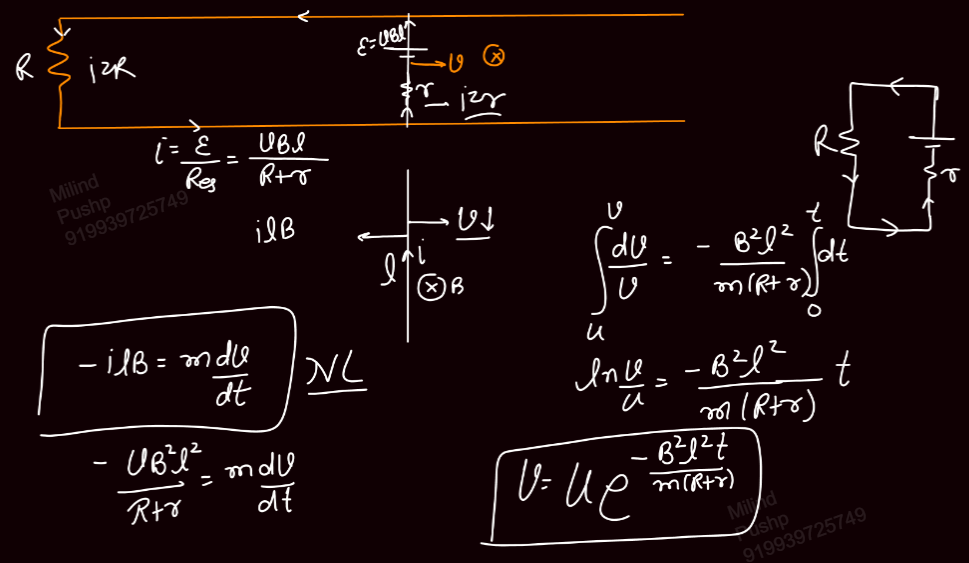 ε=vBl
v ⊗
R
i²R
r
i²r
i = ε/R_eq = vBl/(R+r)
R
r
Milind
Pushp
919939725749
ilB
v↓
l
i
⊗ B
∫_u^v dv/v = - B²l²/m(R+r) ∫_0^t dt
-ilB = m dv/dt
NL
ln v/u = -B²l²/m(R+r) t
- vB²l²/R+r = m dv/dt
v = u e^(-B²l²t/m(R+r))
Milind
Pushp
919939725749